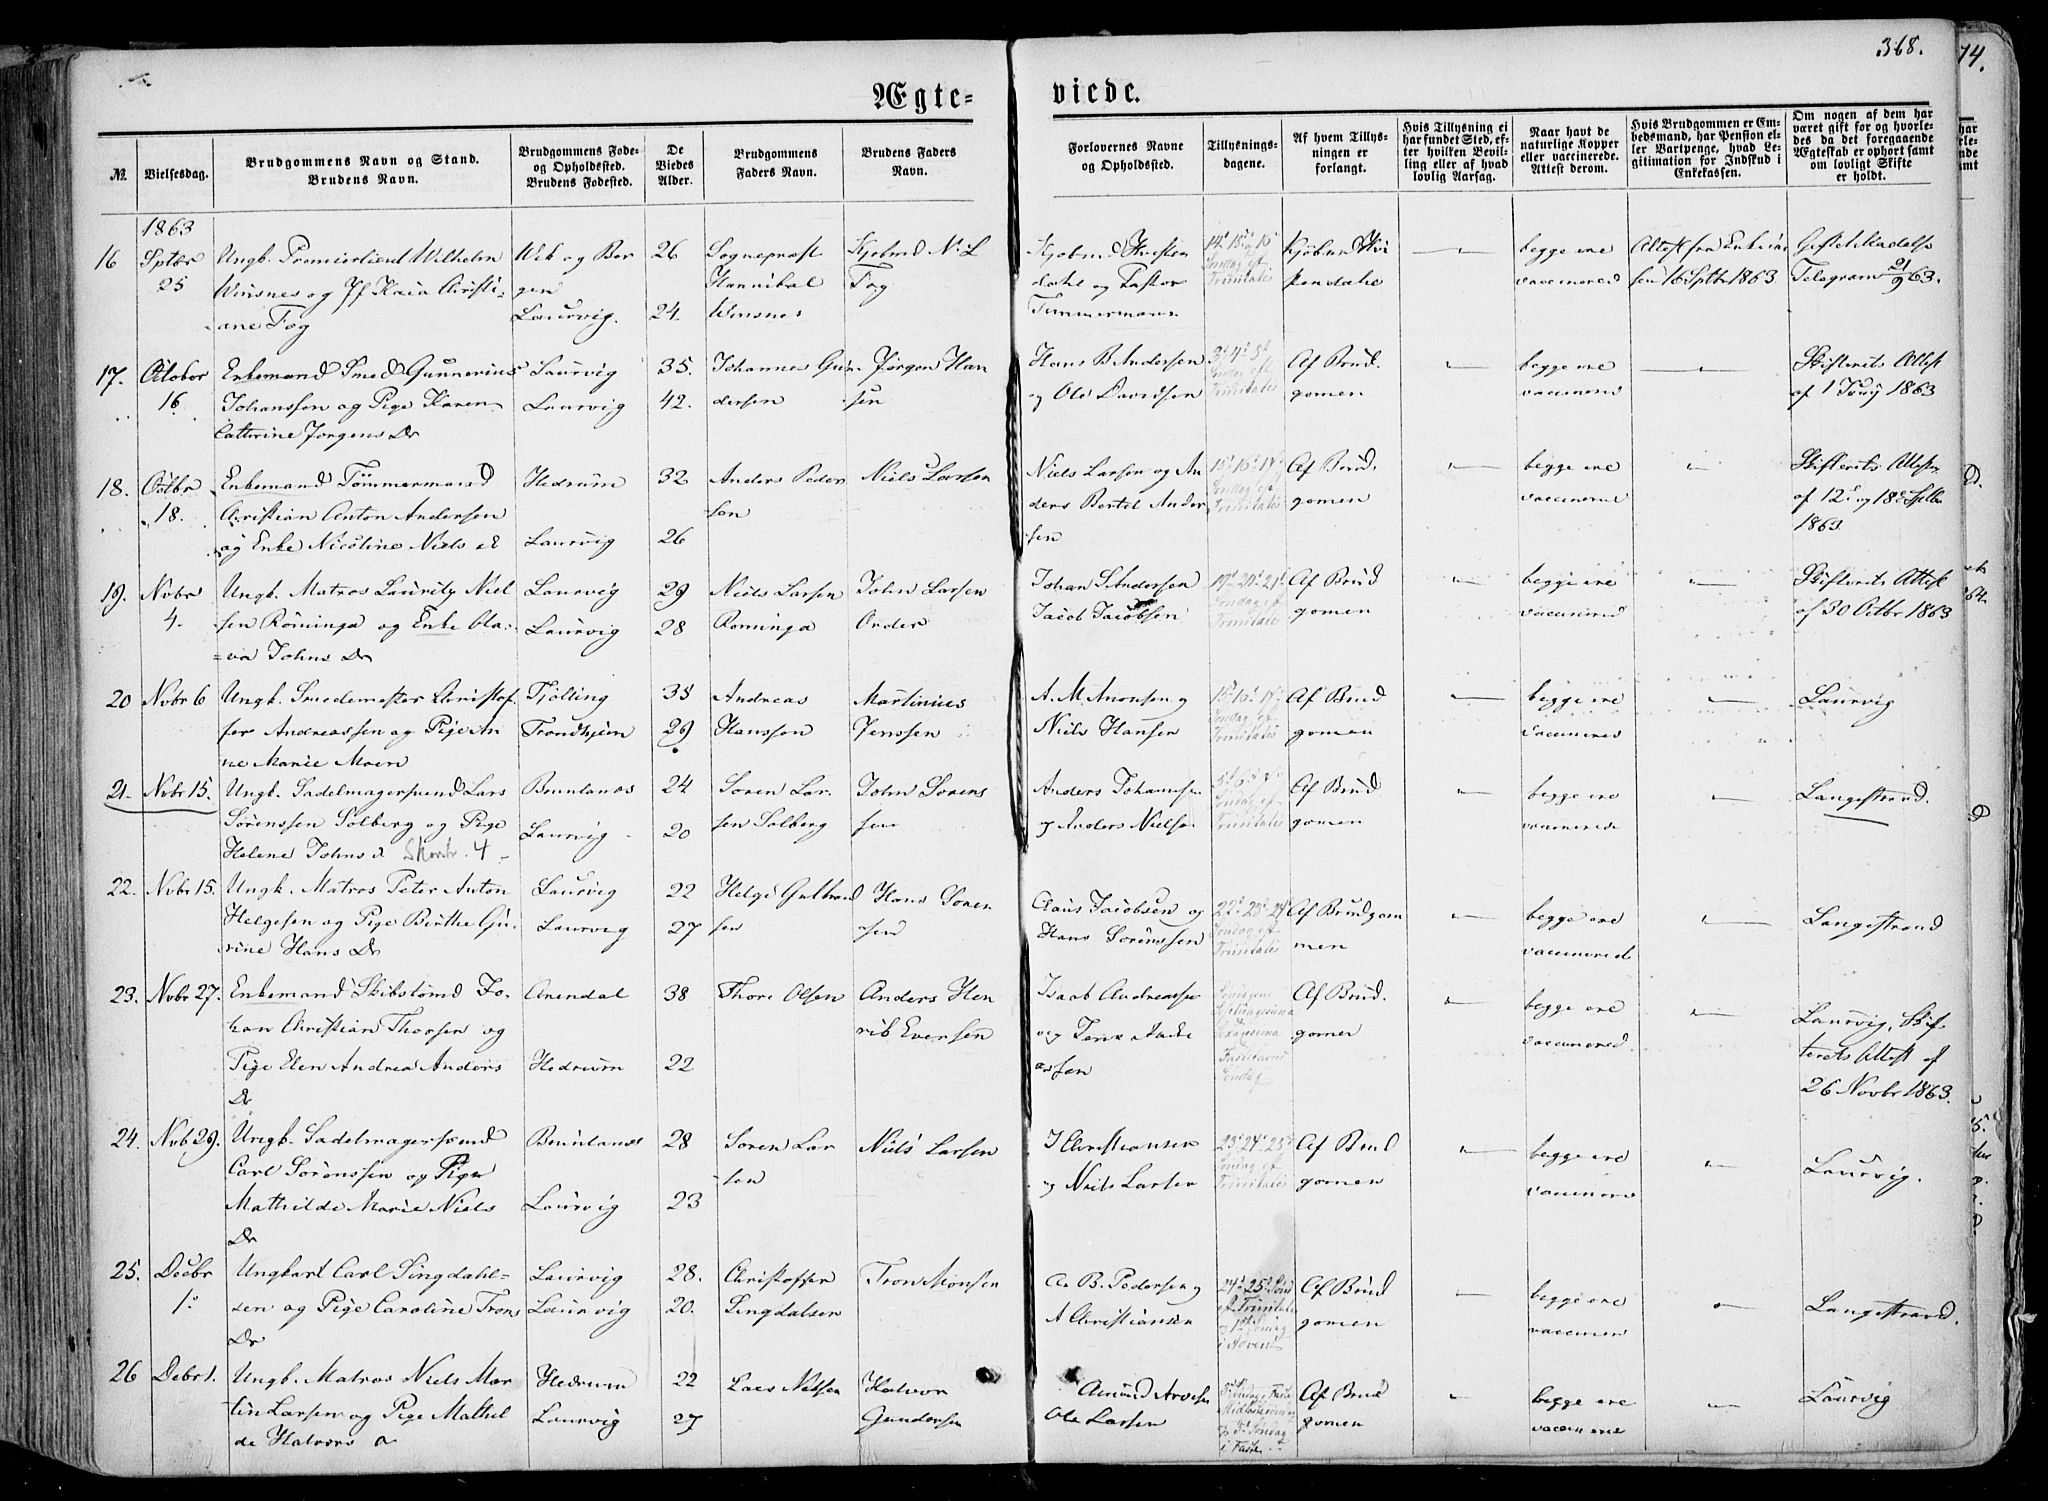 368.
74.
Ægte-
viede.
№
Vielsesdag.
Brudgommens Navn og Stand.
Brudens Navn.
Brudgommens Føde-
og Opholdssted.
Brudens Fødested.
De
Viedes
Alder.
Brudgommens
Faders Navn.
Brudens Faders
Navn.
Forlovernes Navne
og Opholdssted.
Tillysnings-
dagene.
Af hvem Tillys-
ningen er
forlangt.
Hvis Tillysning ei
har fundet Sted, ef-
ter hvilken Bevil-
ling eller af hvad
lovlig Aarsag.
Naar havt de
naturlige Kopper
eller vaccinerede.
Attest derom.
Hvis Brudgommen er Em-
bedsmand, har Pension el-
ler Vartpenge, hvad Le-
gitimation for Indskud i
Enkekassen.
Om nogen af dem har
været gift før og hvorle-
des da det foregaaende
Ægteskab er ophørt samt
om lovligt Skifte
er holdt.
1863
16
Sptbr
25
Ungk. Premierlieut Wilhelm
Winsnes og Jf Kaia Christi-
ane Fog
Wib og Ber
gen
Laurvig.
26
24.
Sogneprest
Hannibal
Winsnes
Kjøbmd N. L
Fog
og Pastor
Timmermann
14d 15d og 16d
Søndag ef
Trinitatis
begge ere
vaccinered
Attest fra Enkekas
sen 16 Septbr 1863
Telegram 21/9 63.
17.
Octobor
16
Enkemand Smed Gunnerius
Johanssen og Pige Karen
Cathrine Jørgens Dr
Laurvig
Laurvig
35.
42.
Johannes Gun-
dersen
Jørgen Han
sen
Hans B. Andersen
og Ole Davidsen
3d 4d 5d
Søndag eft
Trinitatis
Af Brud.
gomen
begge ere
vaccinered
Skifterets Attest
af 1 Juny 1863
18.
Octbr
18.
Enkemand Tömmermand
Christian Anton Andersen
og Enke Nicoline Niels d
Hedrum
Laurvig
32
26
Anders Peder
sen
Niels Larsen
Niels Larsen og An
ders Bertel Ander
sen
15d 16d 17d
Søndag ef
Trinitatis
Af Brud.
gomen
begge ere
vaccinered
Skifterets Attest
af 12d og 18d Septbr
1863
19.
Novbr
4.
Ungk. Matros Lauritz Niel
sen Röminga og Enke Ola-
=va Johns Dr
Laurvig
Laurvig
29
28
Niels Larsen
Rominga
John Larsen
Onder
Johan S Andersen
Jacob Jacobsen
19d 20d 21d
Søndag ef
Trinitatis
Af Brud
gomen
begge ere
vaccinered
Skifterets Attest
af 30 Octbr 1863
20
Novbr 6
Ungk. Smedemester Christof
fer Andreassen og Pige An
ne Marie Moen
Tjölling
Trondhjem
35
29
Andreas
Hanssen
Martinius
Jenssen
A. M. Aronsen og
Niels Hansen
15d 16d 17d
Søndag ef
Trinitatis
Af Brud
gomen
begge ere
vaccinered
Laurvig
21.
Novbr 15.
Ungk. Sadelmagersvend Lars
Sörenssen Solberg og Pige
Helene Johns d
Brunlanæs
Laurvig
24
20
Soren Lar
sen Solberg
John Sorens
sen
Anders Johannsen
og Anders Nielsen
5d 6d 7d
Søndag ef
Trinitatis
Af Brud
gomen
begge ere
vaccinered
Langestrand.
22.
Novbr 15.
Ungk. Matros Peter Anton
Helgesen og Pige Birthe Gu-
rine Hans Dr
Laurvig
Laurvig
22
27
Helge Gulbrand
sen
Hans Soren
sen
Claus Jacobsen og
Hans Sorenssen
22d 23d 24d
Søndag ef
Trinitatis
Af Brudgom
men
begge ere
vaccinered
Langestrand
23.
Novbr 27.
Enkemand Skibstømd Jo-
han Christian Thorsen og
Pige Elen Andrea Anders
Dr
Arendal
Hedrum
38
22
Thore Olsen
Anders Hen
rik Eversen
Isaak Andreassen
Af Brud.
gomen
begge ere
vaccinered.
Laurvig, Skif
terets Attest af
26 Novbr 1863.
24.
Novb 29.
Ungk. Sadelmagersvend
Carl Sörenssen og Pige
Mathilde Marie Niels
Dr
Brunlanæs
Laurvig
28
23
Soren Lar
sen
Niels Larsen
J Christiansen
og Niels Larsen
23d 24d 25d
Søndag ef
Trinitatis
Af Brud
gomen
begge ere
vaccinered
Laurvig.
25.
Decbr
1.
Ungkarl Carl Singdahl-
sen og Pige Caroline Trons
Dr
Laurvig
Laurvig
28.
20.
Christoffer
Singdalsen
Tron Monsen
B. Pedersen og
A Christiansen
24d 25d Sønd
ef Trinitatis
og 1ste Søndag
i Advent
Af Brud
gomen
begge ere
vaccinered
Langestrand.
26
Debr 1.
Ungk. Matros Niels Mar
tin Larsen og Pige Mathil
de Halvors d
Hedrum
Laurvig
22
27
Lars Nielsen
Halvor
Gundersen
Amund Arvesen
Ole Larsen
Af Brud
gomen
begge ere
vaccinered
Laurvig